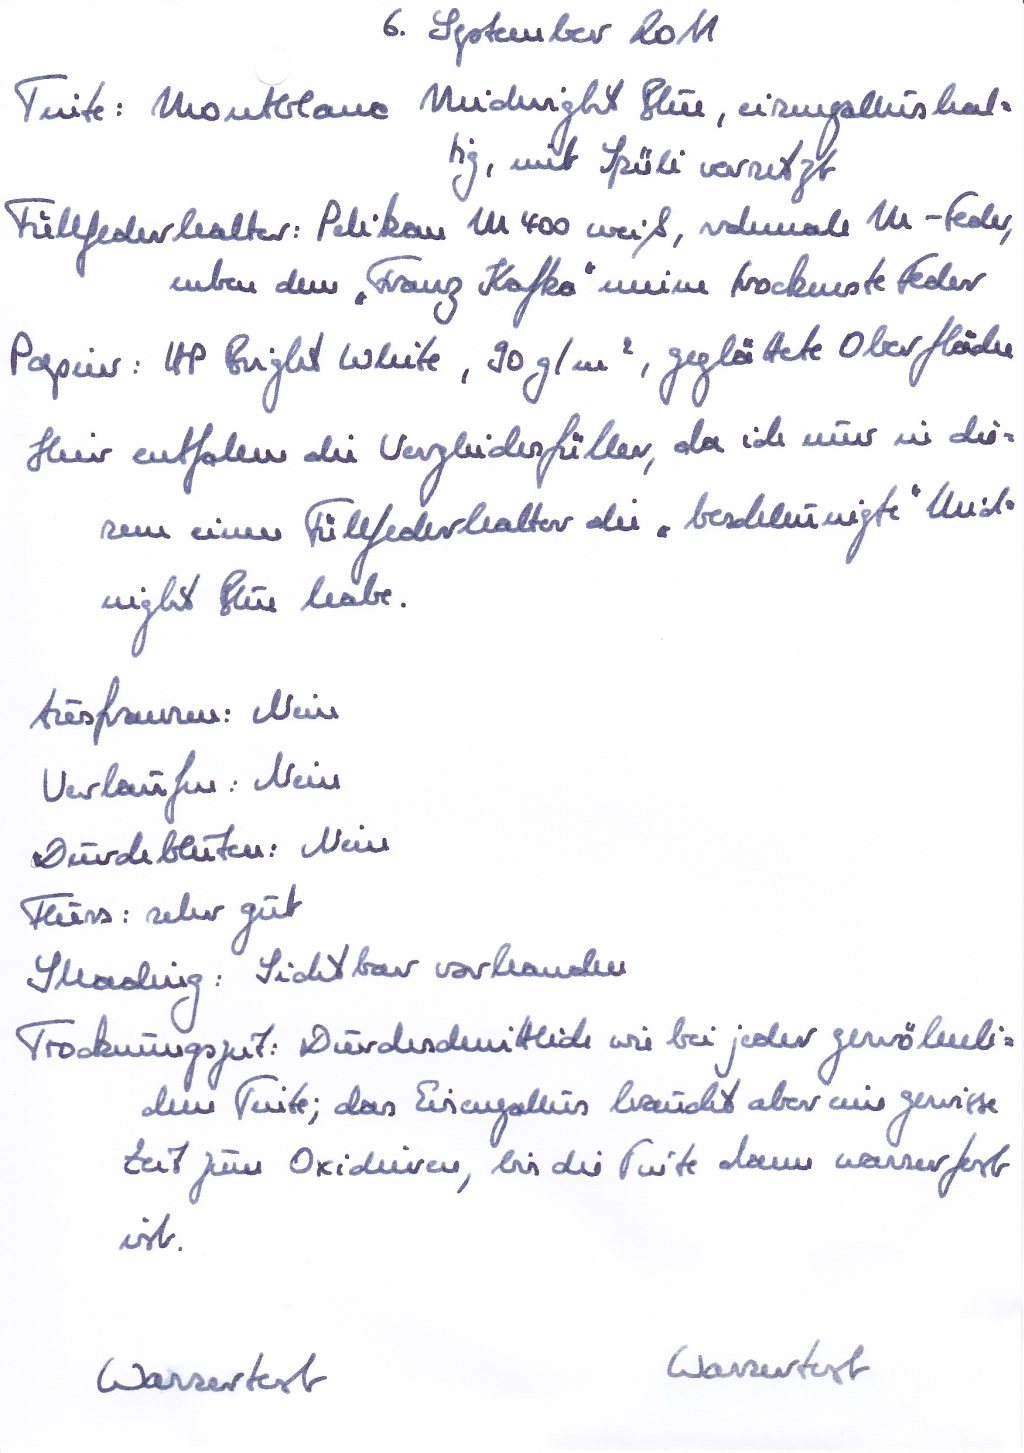 6. September 2011
Tinte: Montblanc Midnight Blue, eisengallushal-
tig, mit Spüli versetzt
Füllfederhalter: Pelikan M 400 weiß, normale M-Feder,
neben dem „Franz Kafka" meine trockenste Feder
Papier: HP Bright White, 90 g/m², geglättete Oberfläche
Hier entfallen die Vergleichsfüller, da ich nur in die-
sem einen Füllfederhalter die „beschleunigte" Mid-
night Blue habe.
Ausfransen: Nein
Verlaufen: Nein
Durchbluten: Nein
Fluss: sehr gut
Shading: Sichtbar vorhanden
Trocknungszeit: Durchschnittlich wie bei jeder gewöhnli-
chen Tinte; das Eisengallus braucht aber eine gewisse
Zeit zum Oxidieren, bis die Tinte dann wasserfest
ist.
Wassertest Wassertest